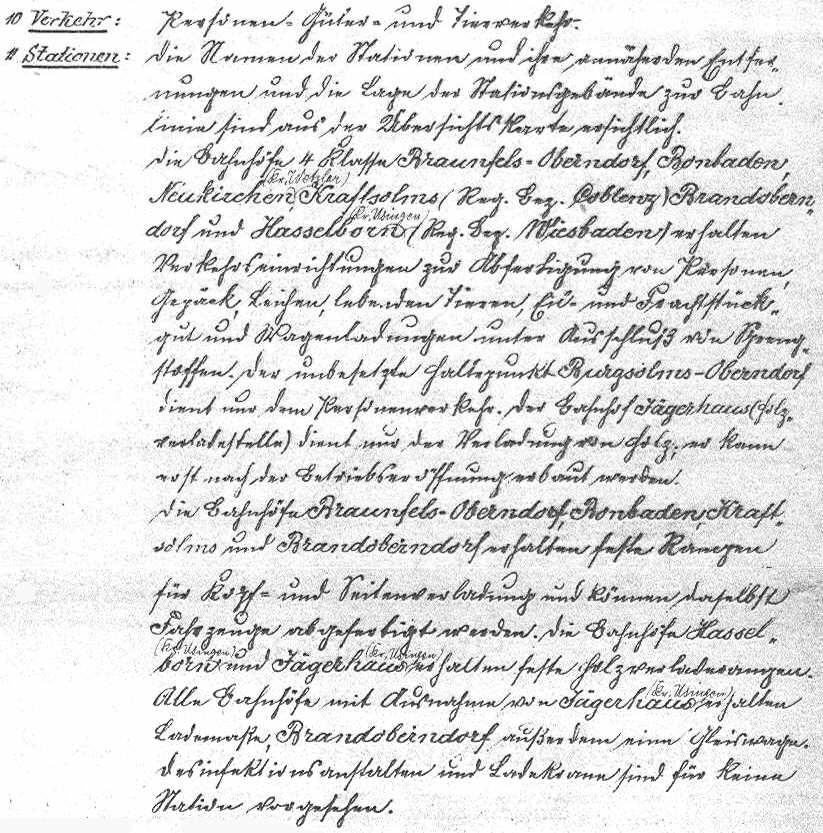 10 Verkehr: Personen- Güter- und Tierverkehr.
11 Stationen: Die Namen der Stationen und ihre annähernden Entfer-
nungen und die Lage der Stationsgebäude zur Bahn
linie sind aus der Übersichtskarte ersichtlich.
Die Bahnhöfe 4 Klasse Braunfels-Oberndorf, Bonbaden,
(Kr. Wetzlar)
Neukirchen, Kraftsolms (Reg. Bez. Coblenz) Brandobern-
(Kr. Usingen)
dorf und Hasselborn (Reg. Bez. Wiesbaden) erhalten
Verkehrseinrichtungen zur Abfertigung von Personen,
Gepäck, Leichen, lebenden Tieren, Eil- und Frachtstück-
gut und Wagenladungen unter Ausschluß von Spreng-
stoffen. Der unbesetzte Haltepunkt Burgsolms-Oberndorf
dient nur dem Personenverkehr. Der Bahnhof Jägerhaus (Holz-
verladestelle) dient nur der Verladung von Holz; er kann
erst nach der Betriebseröffnung erbaut werden.
Die Bahnhöfe Braunfels-Oberndorf, Bonbaden, Kraft-
solms und Brandoberndorf erhalten feste Rampen
für Kopf- und Seitenverladung und können daselbst
Fahrzeuge abgefertigt werden. Die Bahnhöfe Hassel-
(Kr. Usingen) (Kr. Usingen)
born und Jägerhaus erhalten feste Holzverladerampen.
(Kr. Usingen)
Alle Bahnhöfe mit Ausnahme von Jägerhaus erhalten
Lademaße, Brandoberndorf außerdem eine Gleiswage.
Desinfektionsanstalten und Ladekrane sind für keine
Station vorgesehen.